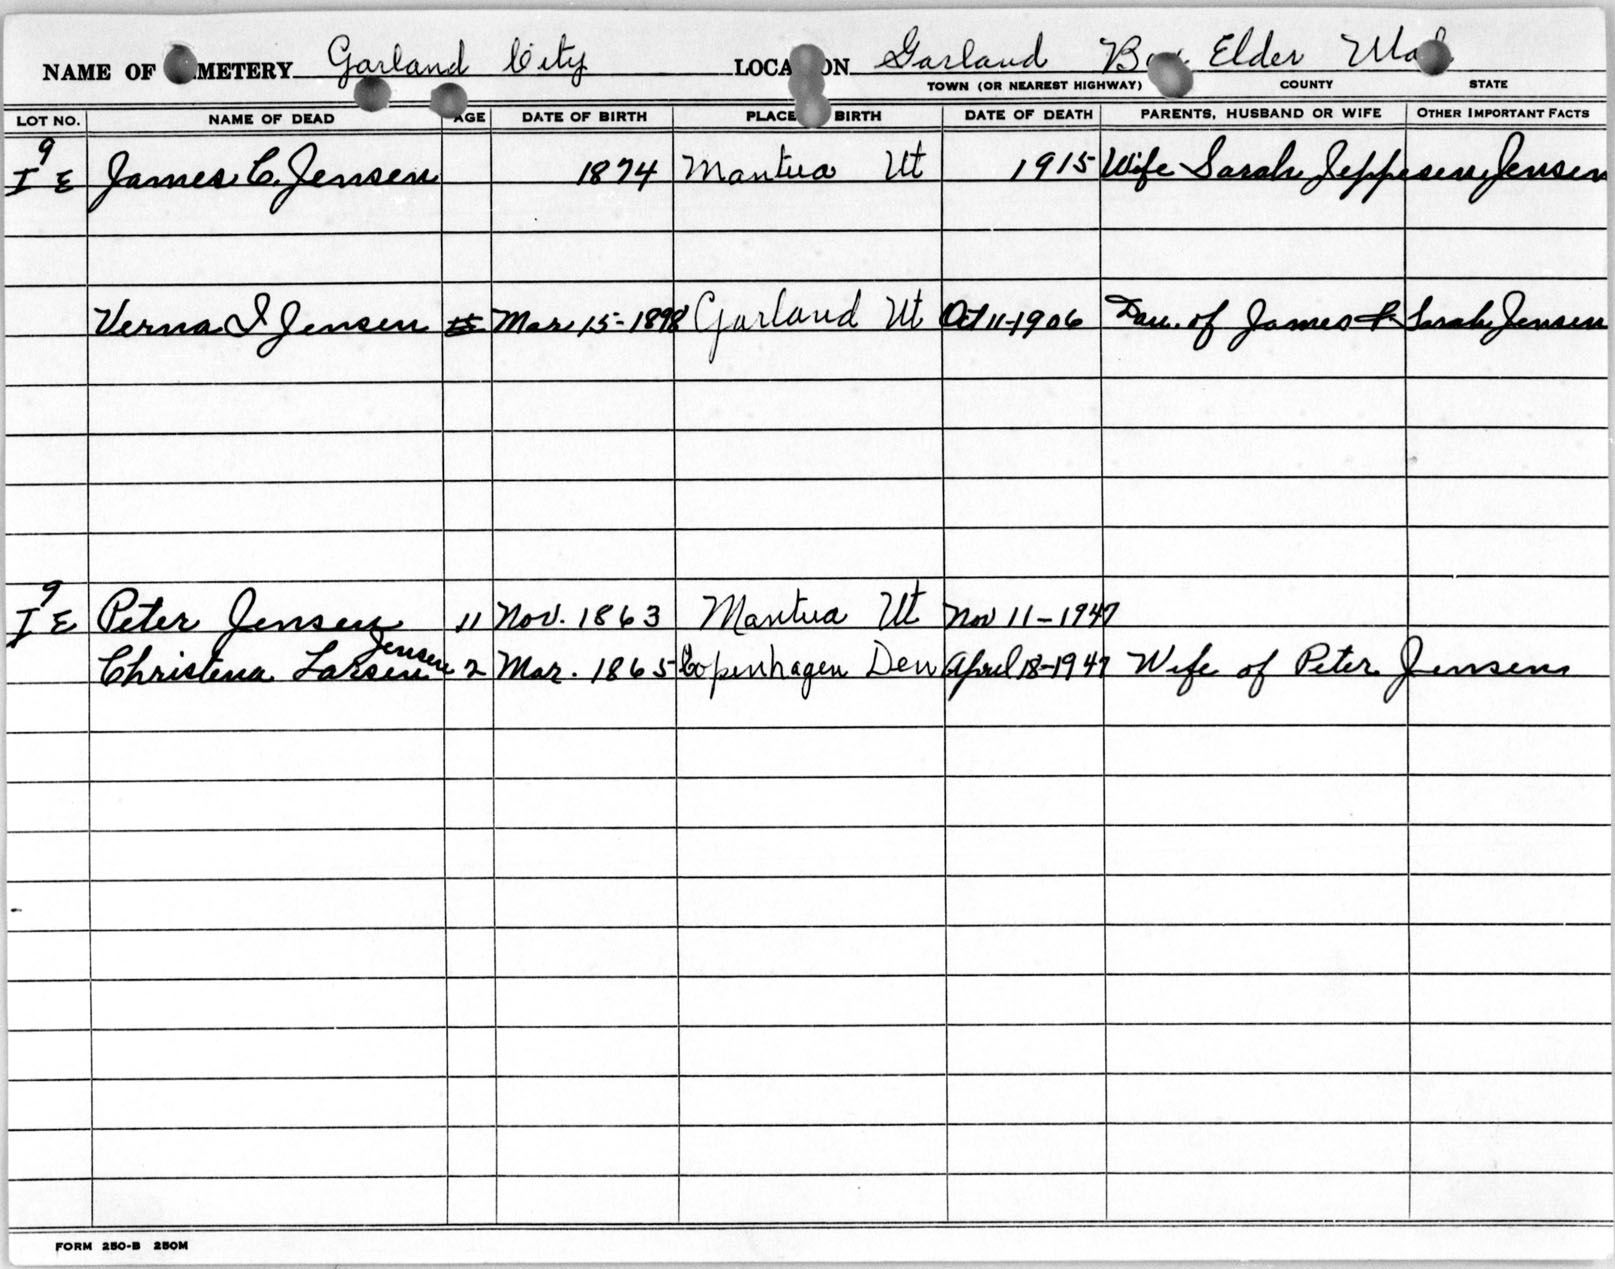 NAME OF CEMETERY Garland City LOCATION Garland Box Elder Utah
TOWN (OR NEAREST HIGHWAY) COUNTY STATE
LOT NO. NAME OF DEAD AGE DATE OF BIRTH PLACE BIRTH DATE OF DEATH PARENTS, HUSBAND OR WIFE OTHER IMPORTANT FACTS
9
I E James C. Jensen 1874 Mantua Ut 1915 Wife Sarah Jeppesen Jensen
Verna I Jensen Mar 15-1898 Garland Ut Oct 11-1906 Dau. of James & Sarah Jensen
9
I E Peter Jensen 11 Nov. 1863 Mantua Ut Nov 11-1947
Jensen
Christena Larsen 2 Mar. 1865 Copenhagen Den April 18-1947 Wife of Peter Jensen
FORM 250-B 250M